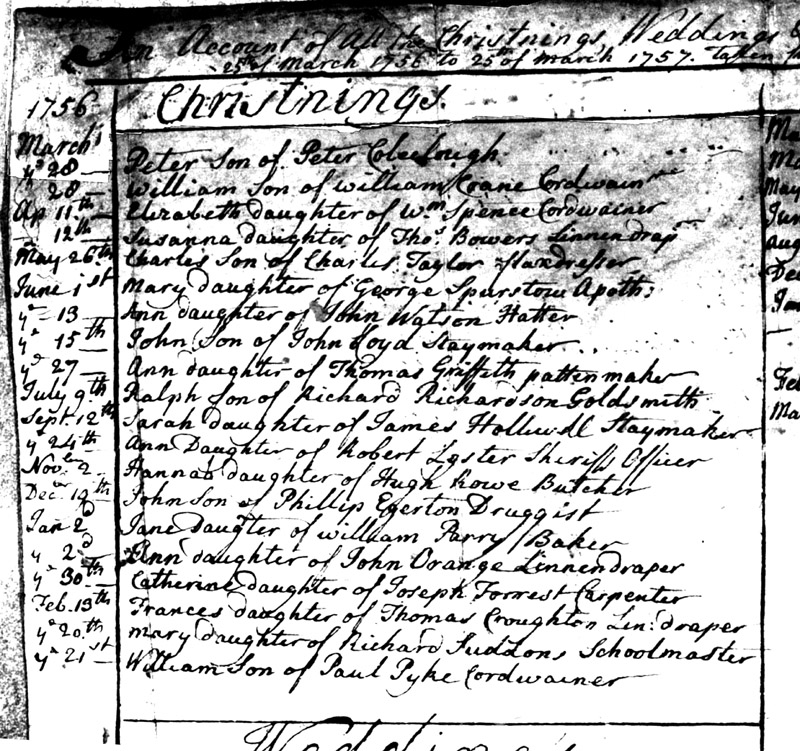 An Account of All the Christnings, Weddings
25th of March 1756 to 25th of March 1757. Taken
1756 Christnings.
March
ye 28 — Peter Son of Peter Colclough
ye 28 — William Son of William Crane Cordwainer
Ap 11th — Elizabeth daughter of Wm Spence Cordwainer
12th — Susanna daughter of Thos Bowers Linnendrapr
May 26th Charles Son of Charles Taylor flaxdresser
June 1st Mary daughter of George Spurstow Apoth:
ye 13 — Ann daughter of John Watson Hatter
ye 15th John Son of John Loyd Staymaker
ye 27 — Ann daughter of Thomas Griffeth pattenmaker
July 9th Ralph Son of Richard Richardson Goldsmith
Sept. 12th Sarah daughter of James Hollwell Staymaker
ye 24th Ann Daughter of Robert Lyster Sheriffs Officer
Novber 2 Hannah daughter of Hugh Rowe Butcher
Decr 19th John Son of Phillip Egerton Druggist
Jan 2d Jane Daugter of William Parry Baker
ye 2d Ann daughter of John Orange Linnendraper
ye 30th Catherine daughter of Joseph Forrest Carpenter
Feb. 13th Frances daughter of Thomas Croughton Lin: draper
ye 20th mary daughter of Richard Juddons Schoolmaster
ye 21st William Son of Paul Pyke Cordwainer
Ma
Me
May
Jun
Aug
Dec
Jan
Feb
Ma